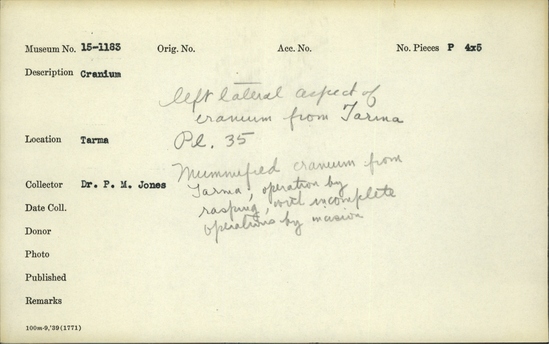 Museum No. 15-1183 Orig. No. Acc. No. No. Pieces P 4x5
Description Cranium
left lateral aspect of
cranium from Tarma
Location Tarma
Pl. 35
Mummified cranium from
Collector Dr. P. M. Jones
Tarma, operation by
rasping, with incomplete
operations by incision
Date Coll.
Donor
Photo
Published
Remarks
100m-9,'39(1771)